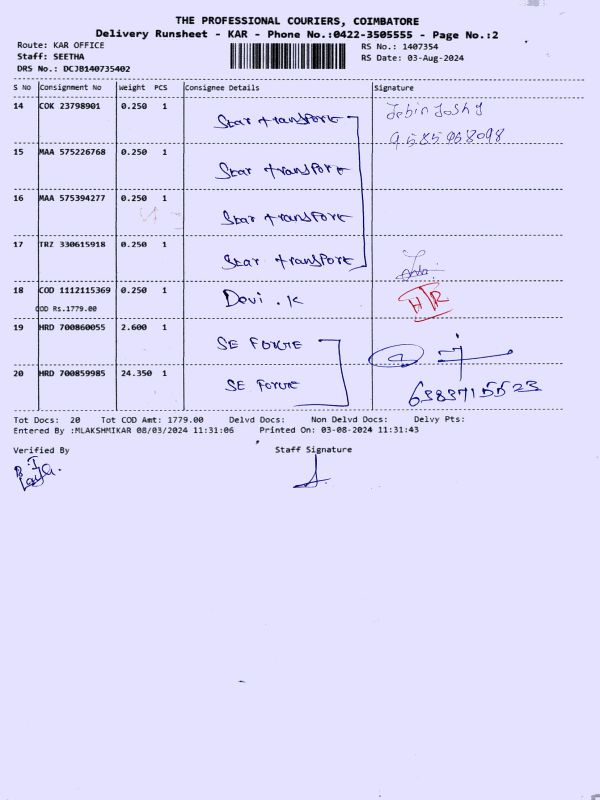 THE PROFESSIONAL COURIERS, COIMBATORE
Delivery Runsheet - KAR - Phone No.:0422-3505555 - Page No.:2
Route: KAR OFFICE RS No.: 1407354
Staff: SEETHA RS Date: 03-Aug-2024
DRS No.: DCJB140735402
S No Consignment No Weight PCS Consignee Details Signature
14 COK 23798901 0.250 1 Star transport Jebin Joshy
9585958098
15 MAA 575226768 0.250 1 Star transport
16 MAA 575394277 0.250 1 Star transport
17 TRZ 330615918 0.250 1 Star transport
18 COD 1112115369 0.250 1 Devi . K
COD Rs.1779.00 HR
19 HRD 700860055 2.600 1 SE FORGE
20 HRD 700859985 24.350 1 SE FORGE 6383715523
Tot Docs: 20 Tot COD Amt: 1779.00 Delvd Docs: Non Delvd Docs: Delvy Pts:
Entered By :MLAKSHMIKAR 08/03/2024 11:31:06 Printed On: 03-08-2024 11:31:43
Verified By Staff Signature